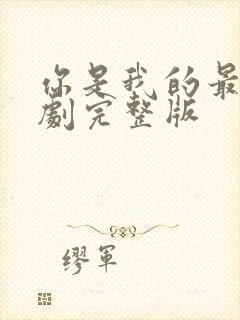 你是我的最
劇完整版
缪軍